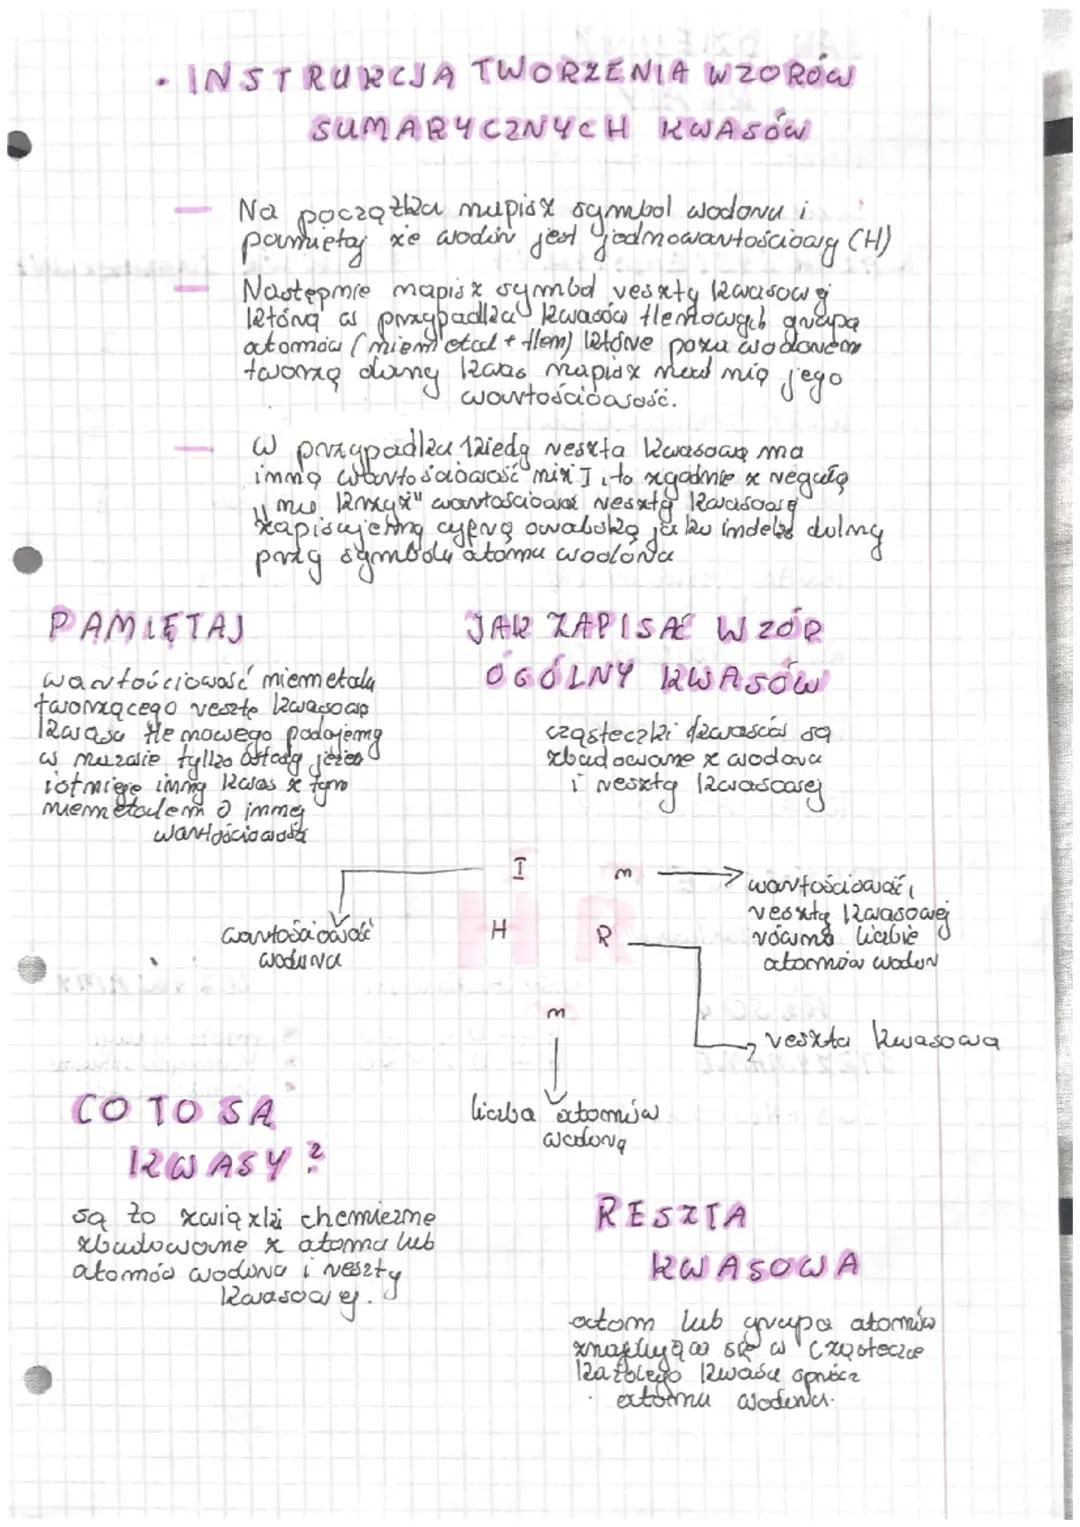 • INSTRUKCJA TWORZENIA WZORÓW
SUMARYCZNYCH KWASÓW
— Na początku napisz symbol wodoru i
pamiętaj że wodór jest jednowartościowy (H)
— Następnie napisz symbol reszty kwasowej
którą w przypadku kwasów tlenowych grupa
atomów (niemetal + tlen) które poza wodorem
tworzą dany kwas napisz nad nią jego
wartościowość.
— W przypadku kiedy reszta kwasowa ma
inną wartościowość niż I, to zgodnie z regułą
"na krzyż" wartościowość reszty kwasowej
zapisujemy cyfrą arabską jako indeks dolny
przy symbolu atomu wodoru
PAMIĘTAJ
wartościowość niemetalu
tworzącego resztę kwasową
kwasu tlenowego podajemy
w nazwie tylko wtedy jeżeli
istnieje inny kwas z tym
niemetalem o innej
wartościowości
JAK ZAPISAĆ WZÓR
OGÓLNY KWASÓW
cząsteczki kwasów są
zbudowane z wodoru
i reszty kwasowej
I m
wartościowość
wodoru
H R
wartościowość
reszty kwasowej
równa liczbie
atomów wodoru
m
reszta kwasowa
liczba atomów
wodoru
CO TO SĄ
KWASY?
są to związki chemiczne
zbudowane z atomu lub
atomów wodoru i reszty
kwasowej.
RESZTA
KWASOWA
atom lub grupa atomów
znajdująca się w cząsteczce
każdego kwasu oprócz
atomu wodoru.